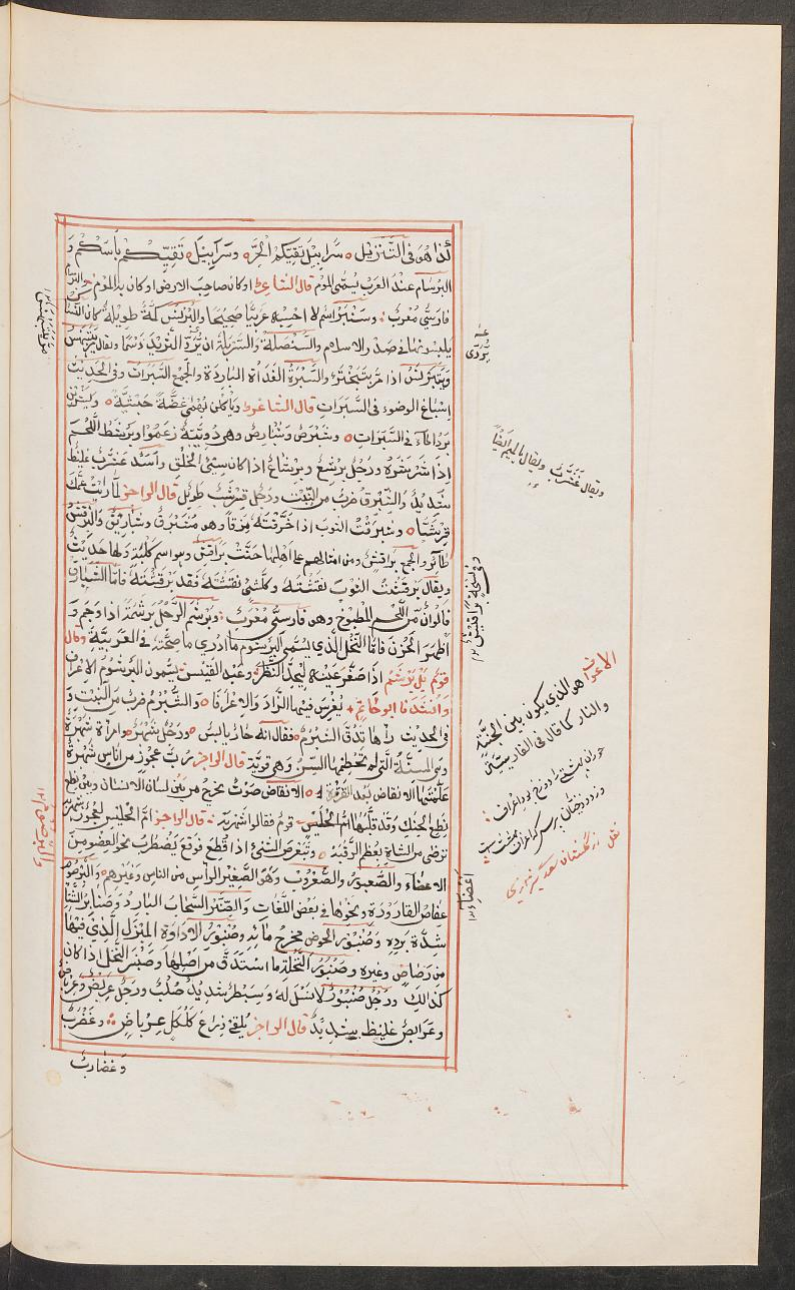 كذا هو فى التنزيل سرابيل تقيكم الحر وسرابيل تقيكم بأسكم و
البرسام عند العرب يسمى الموم قال الشاعر او كان صاحب الارض او كان به الموم والبرسام
فارسى معرب وسنبر اسم لا احسبه عربيا صحيحا والبرنس كمة طويلة كان النساك
يلبسونها فى صدر الاسلام والسربلة ان تروى الثريد دسما ويقال
ويتبرنس اذا مر يتبختر والسبرة الغداة الباردة والجمع السبرات وفى الحديث
اسباغ الوضوء فى السبرات قال الشاعر وياكلن بهمى غضة حبشية ويشربن
برد الماء فى السبرات وشبرص وشبارص وهى دويبة زعموا وبرشط اللحم
اذا شرشره ورجل برشع وبرشاع اذا كان سيئ الخلق واسد عشرب غليظ
شديد والشبرق ضرب من النبت ورجل قرشب طويل قال الراجز لما رايت عمك
قرشبا وشبرقت الثوب اذا خرقته مزقا وهو مشبرق وشباريق والبرقش
طائر والجمع براقش ومن امثالهم على اهلها جنت براقش وهو اسم كلبة ولها حديث
ويقال برقشت الثوب نقشته وكلشئ نقشته فقد برقشته فاما الشبارق
فالوان من اللحم المطبوخ وهو فارسى معرب وبرشم الرجل برشمة اذا وجم و
اظهر الحزن فاما النخل الذى يسمى البرشوم ما ادرى ما صحته فى العربية وقال
قوم بل برشم اذا صغر عينه ليحد النظر وعبد القيس يسمون البرشوم الاعراف
وانشدنا ابو حاتم يغرس فيها الزاد والاعرافا والشبرم ضرب من النبت و
فى الحديث رءاها تدق الشبرم فقال انه حار يابس ورجل شهبر وامراة شهبرة
وهى المسنة التى لم تحطمها السن وهى قوية قال الراجز رب عجوز من اناس شهبرة
علمتها الانقاض بعد القرقرة الانقاض صوت يخرج من بين لسان الانسان وبين نطع
نطع الحنك وقد قلبها قوم فقالوا شهربة قال الراجز ام الحليس لعجوز شهربة
ترضى من الشاة بعظم الرقبة وتبعرص الشئ اذا قطع فوقع يضطرب نحو العضو من
الاعضاء والصعبور والصعروب وهو الصغير الراس من الناس وغيرهم والبرصوم
عفاص القارورة ونحوها فى بعض اللغات والصنبر السحاب البارد وصنابر الشتا
شدة برده وصنبور الحوض مخرج مائه وصنبور الاداوة المنزل الذى فيها
من رصاص وغيره وصنبور النخلة ما استدق من اصلها وصنبر النخل اذا كان
كذالك ورجل صنبور لا نسل له وسبطر شديد صلب ورجل عربض وعرباض
وعرابض غليظ شديد قال الراجز يلقى ذراعى كلكل عرباض وغضرب
وغضارب
ويقال عشرب ويقال لهم ايضا
وفى نسخة براقيش
الاعراب هو الذى يكون بين الجنة
والنار كما قال فى الفارسية
حوران بهشتى را دوزخ بود اعراف
از دوزخيان پرس كه اعراف بهشت است
نقل از گلستان سعدى شيرازى
اعضاء